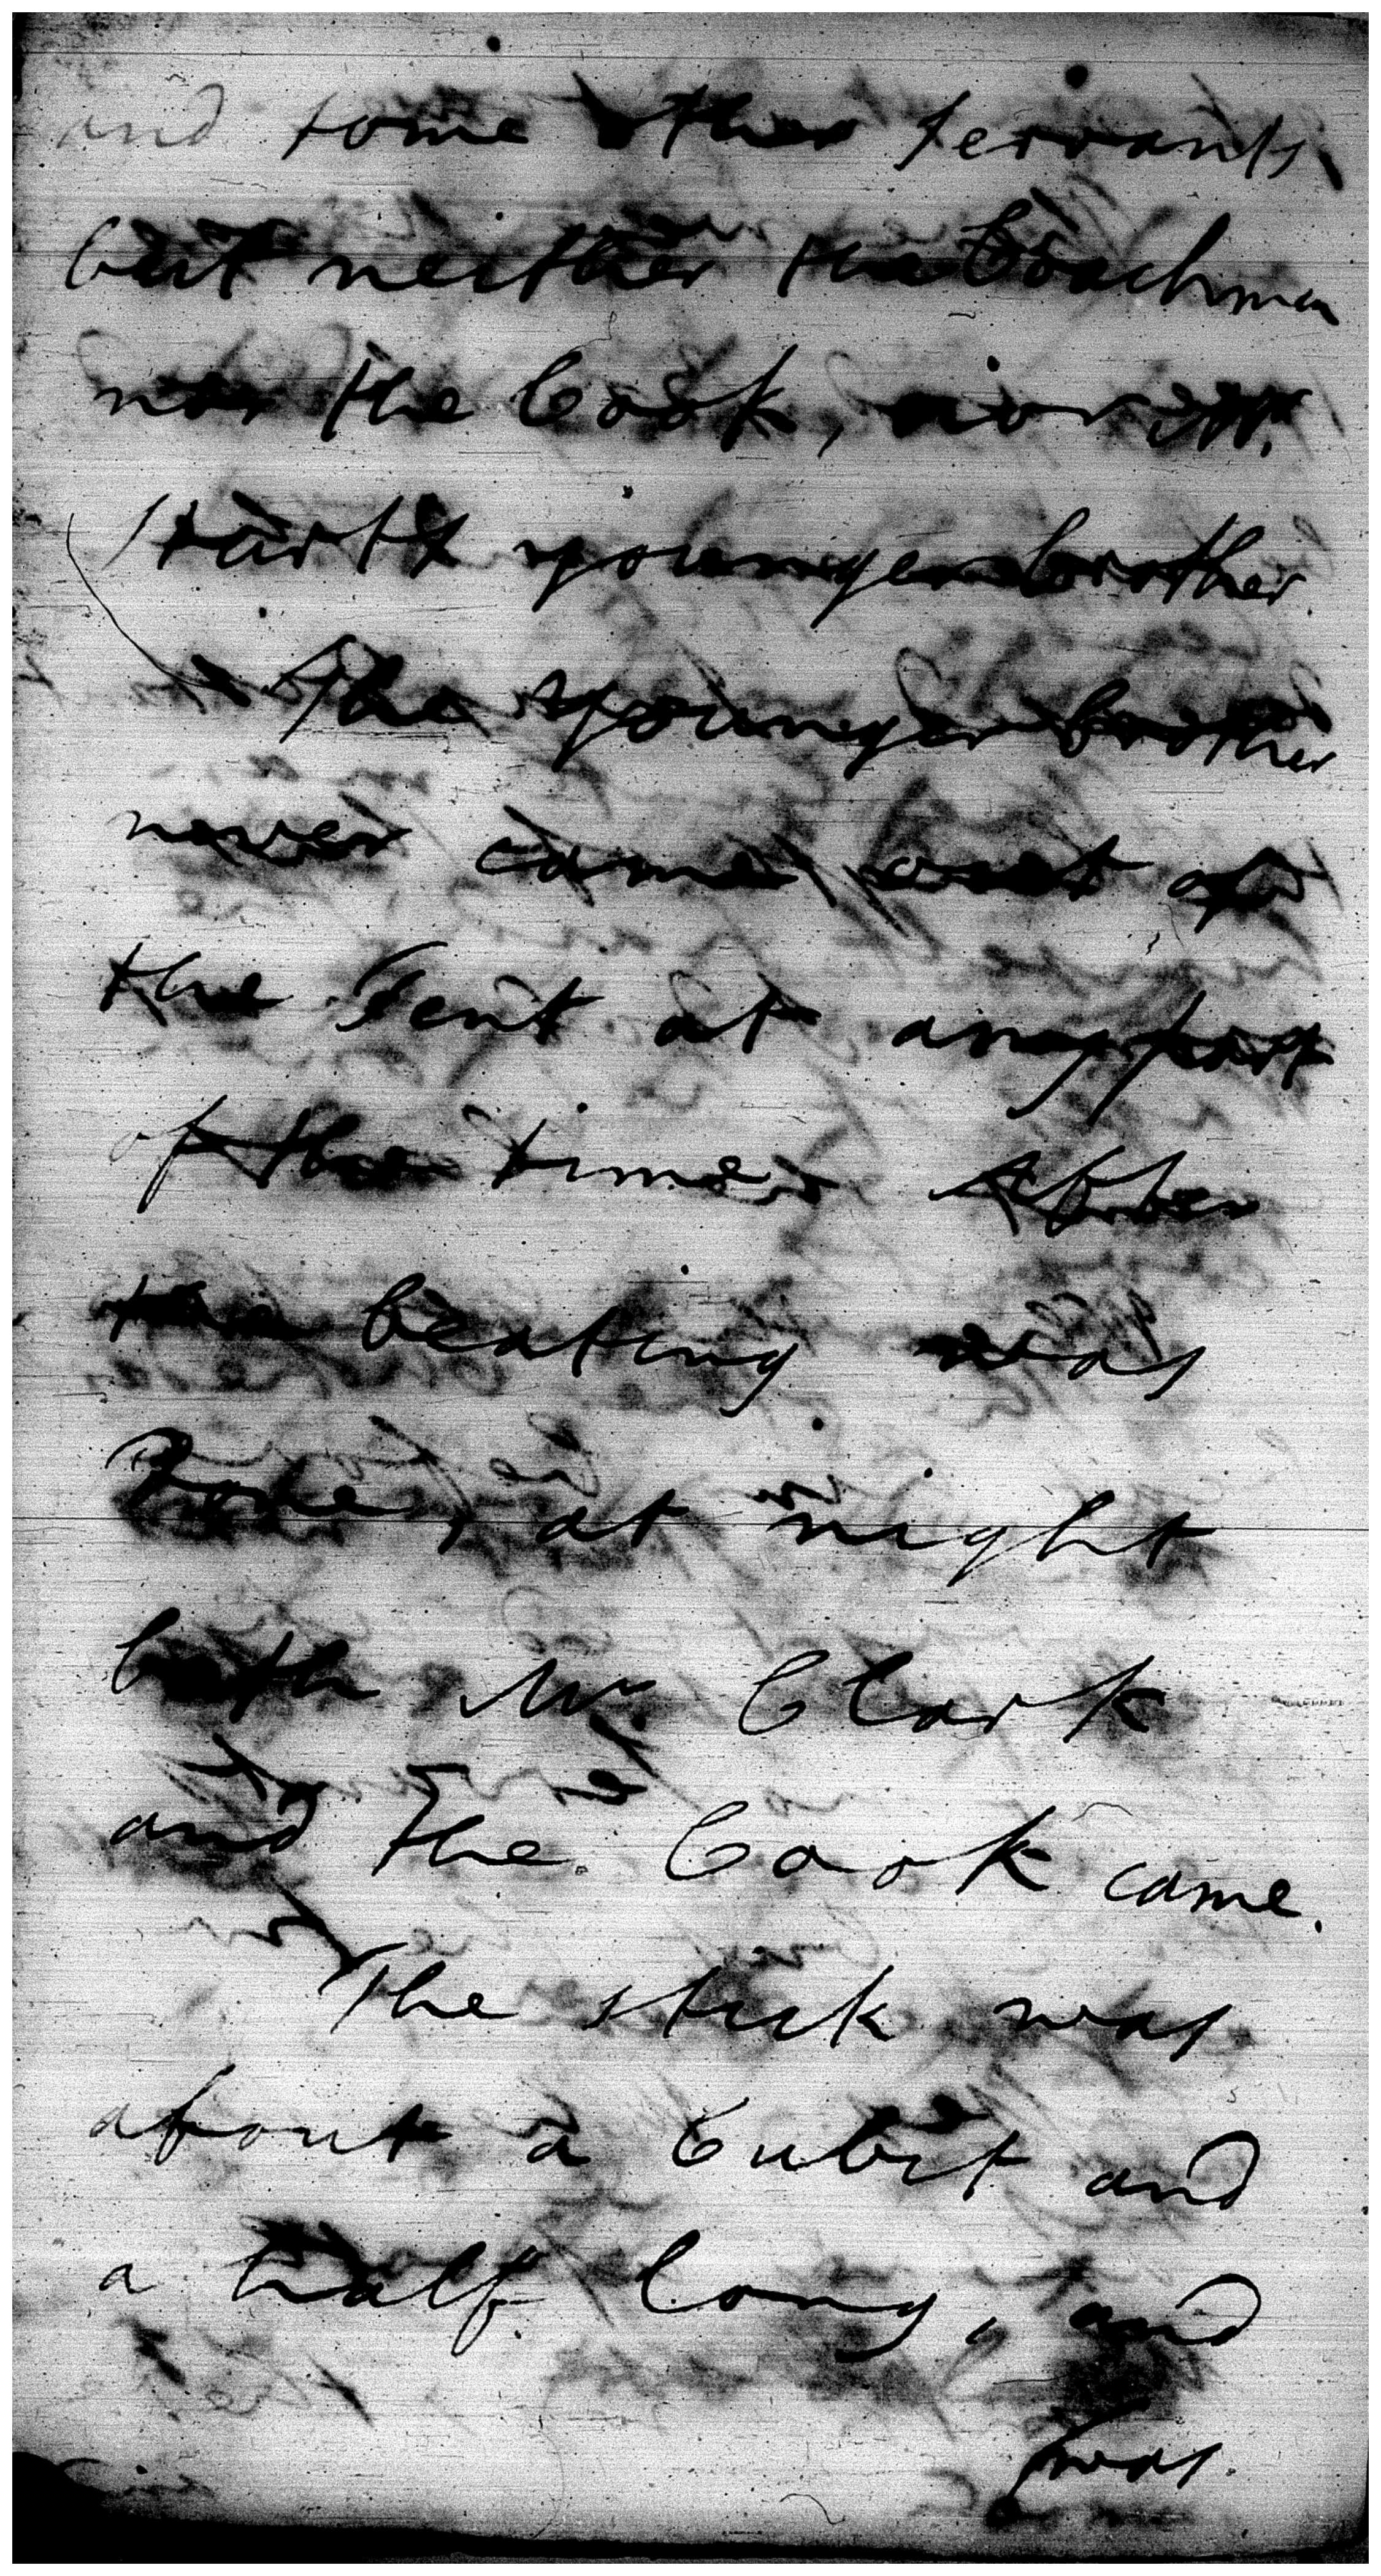 and some other servants,
but neither the Coachman
nor the Cook, nor Mr.
younger brother.
The younger brother
never came out of
the Tent at any part
of the time. After
the beating was
Done, at night
both Mr. Clark
and the Cook came.
The stick was
about a Cubit and
a half long, and
was